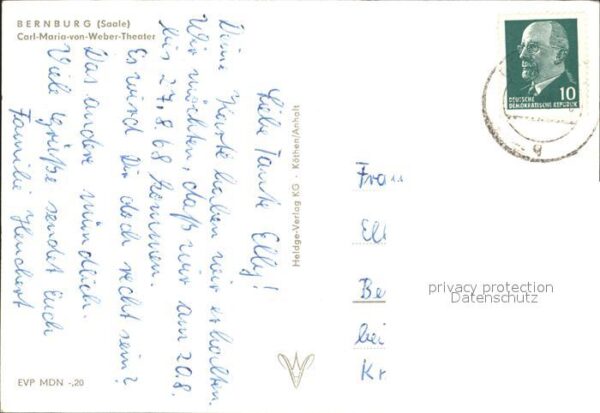 BERNBURG (Saale)
Carl-Maria-von-Weber-Theater
Liebe Tante Elly!
Deine Karte haben wir erhalten.
Wir möchten, daß wir am 20.8.
bis 27.8.68 kommen.
Es wird Dir doch recht sein?
Das andere mündlich.
Viele Grüße sendet Euch
Familie
Heldge-Verlag KG · Köthen/Anhalt
EVP MDN -,20
10
DEUTSCHE
DEMOKRATISCHE REPUBLIK
Frau
Ell
Be
bei
Kr
privacy protection
Datenschutz